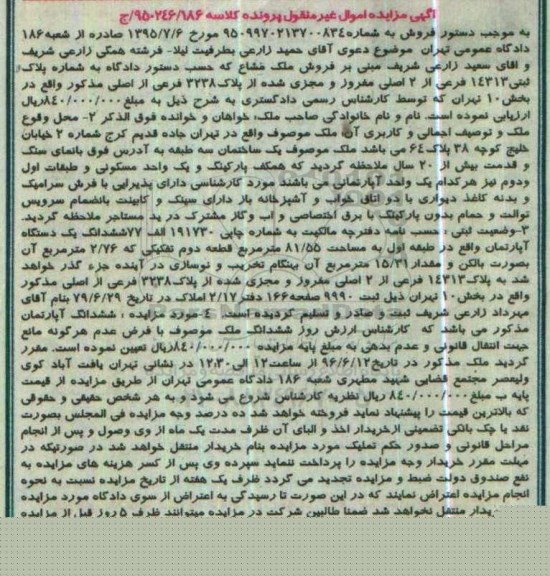 آگهی مزایده اموال غیرمنقول پرونده کلاسه ۹۵۰۲۴۶/۱۸۶/ج
به موجب دستور فروش به شماره ۹۵۰۹۹۷۰۲۱۳۷۰۰۸۳۴ مورخ ۱۳۹۵/۷/۶ صادره از شعبه ۱۸۶
دادگاه عمومی تهران موضوع دعوی آقای حمید زارعی بطرفیت لیلا- فرشته همگی زارعی شریف
و اقای سعید زارعی شریف مبنی بر فروش ملک مشاع که حسب دستور دادگاه به شماره پلاک
ثبتی ۱۴۳۱۳ فرعی از ۲ اصلی مفروز و مجزی شده از پلاک ۳۲۳۸ فرعی از اصلی مذکور واقع در
بخش ۱۰ تهران که توسط کارشناس رسمی دادگستری به شرح ذیل به مبلغ ۸۴۰/۰۰۰/۰۰۰ ریال
ارزیابی نموده است. نام و نام خانوادگی صاحب ملک: خواهان و خوانده فوق الذکر ۲- محل وقوع
ملک و توصیف اجمالی و کاربری آن ملک موصوف واقع در تهران جاده قدیم کرج شماره ۲ خیابان
خلیج کوچه ۳۸ پلاک ۶۴ می باشد ملک موصوف یک ساختمان سه طبقه به آدرس فوق بانمای سنگ
و قدمت بیش از ۲۰ سال ملاحظه گردید که همکف پارکینگ و یک واحد مسکونی و طبقات اول
ودوم نیز هرکدام یک واحد آپارتمانی می باشند مورد کارشناسی دارای پذیرایی با فرش سرامیک
و بدنه کاغذ دیواری با دو اتاق خواب و آشپزخانه باز دارای سینک و کابینت بانضمام سرویس
توالت و حمام بدون پارکینگ با برق اختصاصی و اب وگاز مشترک در ید مستاجر ملاحظه گردید.
۳-وضعیت ثبتی : حسب نامه دفترچه مالکیت به شماره چاپی ۱۹۱۷۳۰ الف ۷۷ ششدانگ یک دستگاه
آپارتمان واقع در طبقه اول به مساحت ۸۱/۵۵ مترمربع قطعه دوم تفکیکی که ۲/۷۶ مترمربع آن
بصورت بالکن و مقدار ۱۵/۳۱ مترمربع آن بهنگام تخریب و نوسازی در آینده جزء گذر خواهد
شد به پلاک ۱۴۳۱۳ فرعی از ۲ اصلی مفروز و مجزی شده از پلاک ۳۲۳۸ فرعی از اصلی مذکور
واقع در بخش ۱۰ تهران ذیل ثبت ۹۹۹۰ صفحه ۱۶۶ دفتر ۲/۱۷ املاک در تاریخ ۷۹/۶/۲۹ بنام آقای
مهرداد زارعی شریف ثبت و صادر و تسلیم گردیده است. ۴-مورد مزایده : ششدانگ آپارتمان
مذکور می باشد که کارشناس ارزش روز ششدانگ ملک موصوف با فرض عدم هرگونه مانع
جهت انتقال قانونی و عدم بدهی به مبلغ پایه مزایده ۸۴۰/۰۰۰/۰۰۰ ریال تعیین نموده است. مقرر
گردید ملک مذکور در تاریخ ۹۶/۶/۱۲ از ساعت ۱۲ الی ۱۲:۳۰ در نشانی تهران یافت آباد کوی
ولیعصر مجتمع قضایی شهید مطهری شعبه ۱۸۶ دادگاه عمومی تهران از طریق مزایده از قیمت
پایه ب مبلغ ۸۴۰/۰۰۰/۰۰۰ ریال نظریه کارشناس شروع می شود و به هر شخص حقیقی و حقوقی
که بالاترین قیمت را پیشنهاد نماید فروخته خواهد شد ده درصد وجه مزایده فی المجلس بصورت
نقد یا چک بانکی تضمینی ازخریدار اخذ و الباقی آن ظرف مدت یک ماه از وی وصول و پس از انجام
مراحل قانونی و صدور حکم تملیک مورد مزایده بنام خریدار منتقل خواهد شد در صورتیکه در
مهلت مقرر خریدار وجه مزایده را پرداخت ننماید سپرده وی پس از کسر هزینه های مزایده به
نفع صندوق دولت ضبط و مزایده تجدید می گردد ظرف یک هفته از تاریخ مزایده نسبت به نحوه
انجام مزایده اعتراض نمایند که در این صورت تا رسیدگی به اعتراض از سوی دادگاه مورد مزایده
یدار منتقل نخواهد شد ضمنا طالبین شرکت در مزایده میتوانند ظرف ۵ روز قبل از مزایده